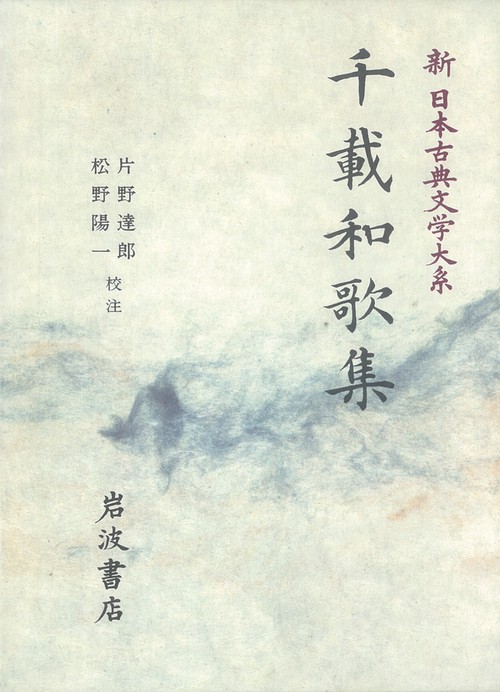 新 日本古典文学大系
千載和歌集
片野達郎
松野陽一
校注
岩波書店